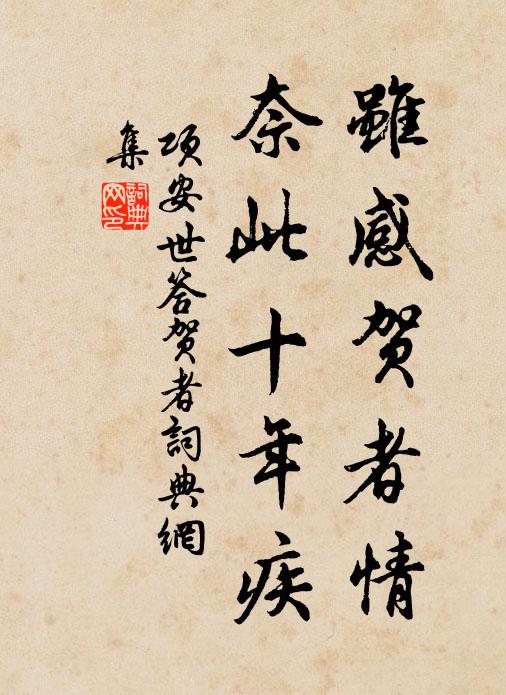 雖感賀者情
奈此十年疾
項安世答賀者詞典網
集
詞典
网印